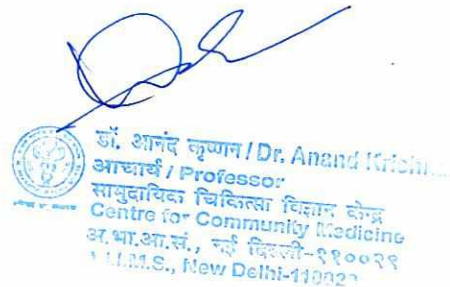 डॉ. आनंद कृष्णन / Dr. Anand
आचार्य / Professor
सामुदायिक चिकित्सा विज्ञान केन्द्र
Centre for Community Medicine
अ.भा.आ.सं., नई दिल्ली-११००२९
New Delhi-